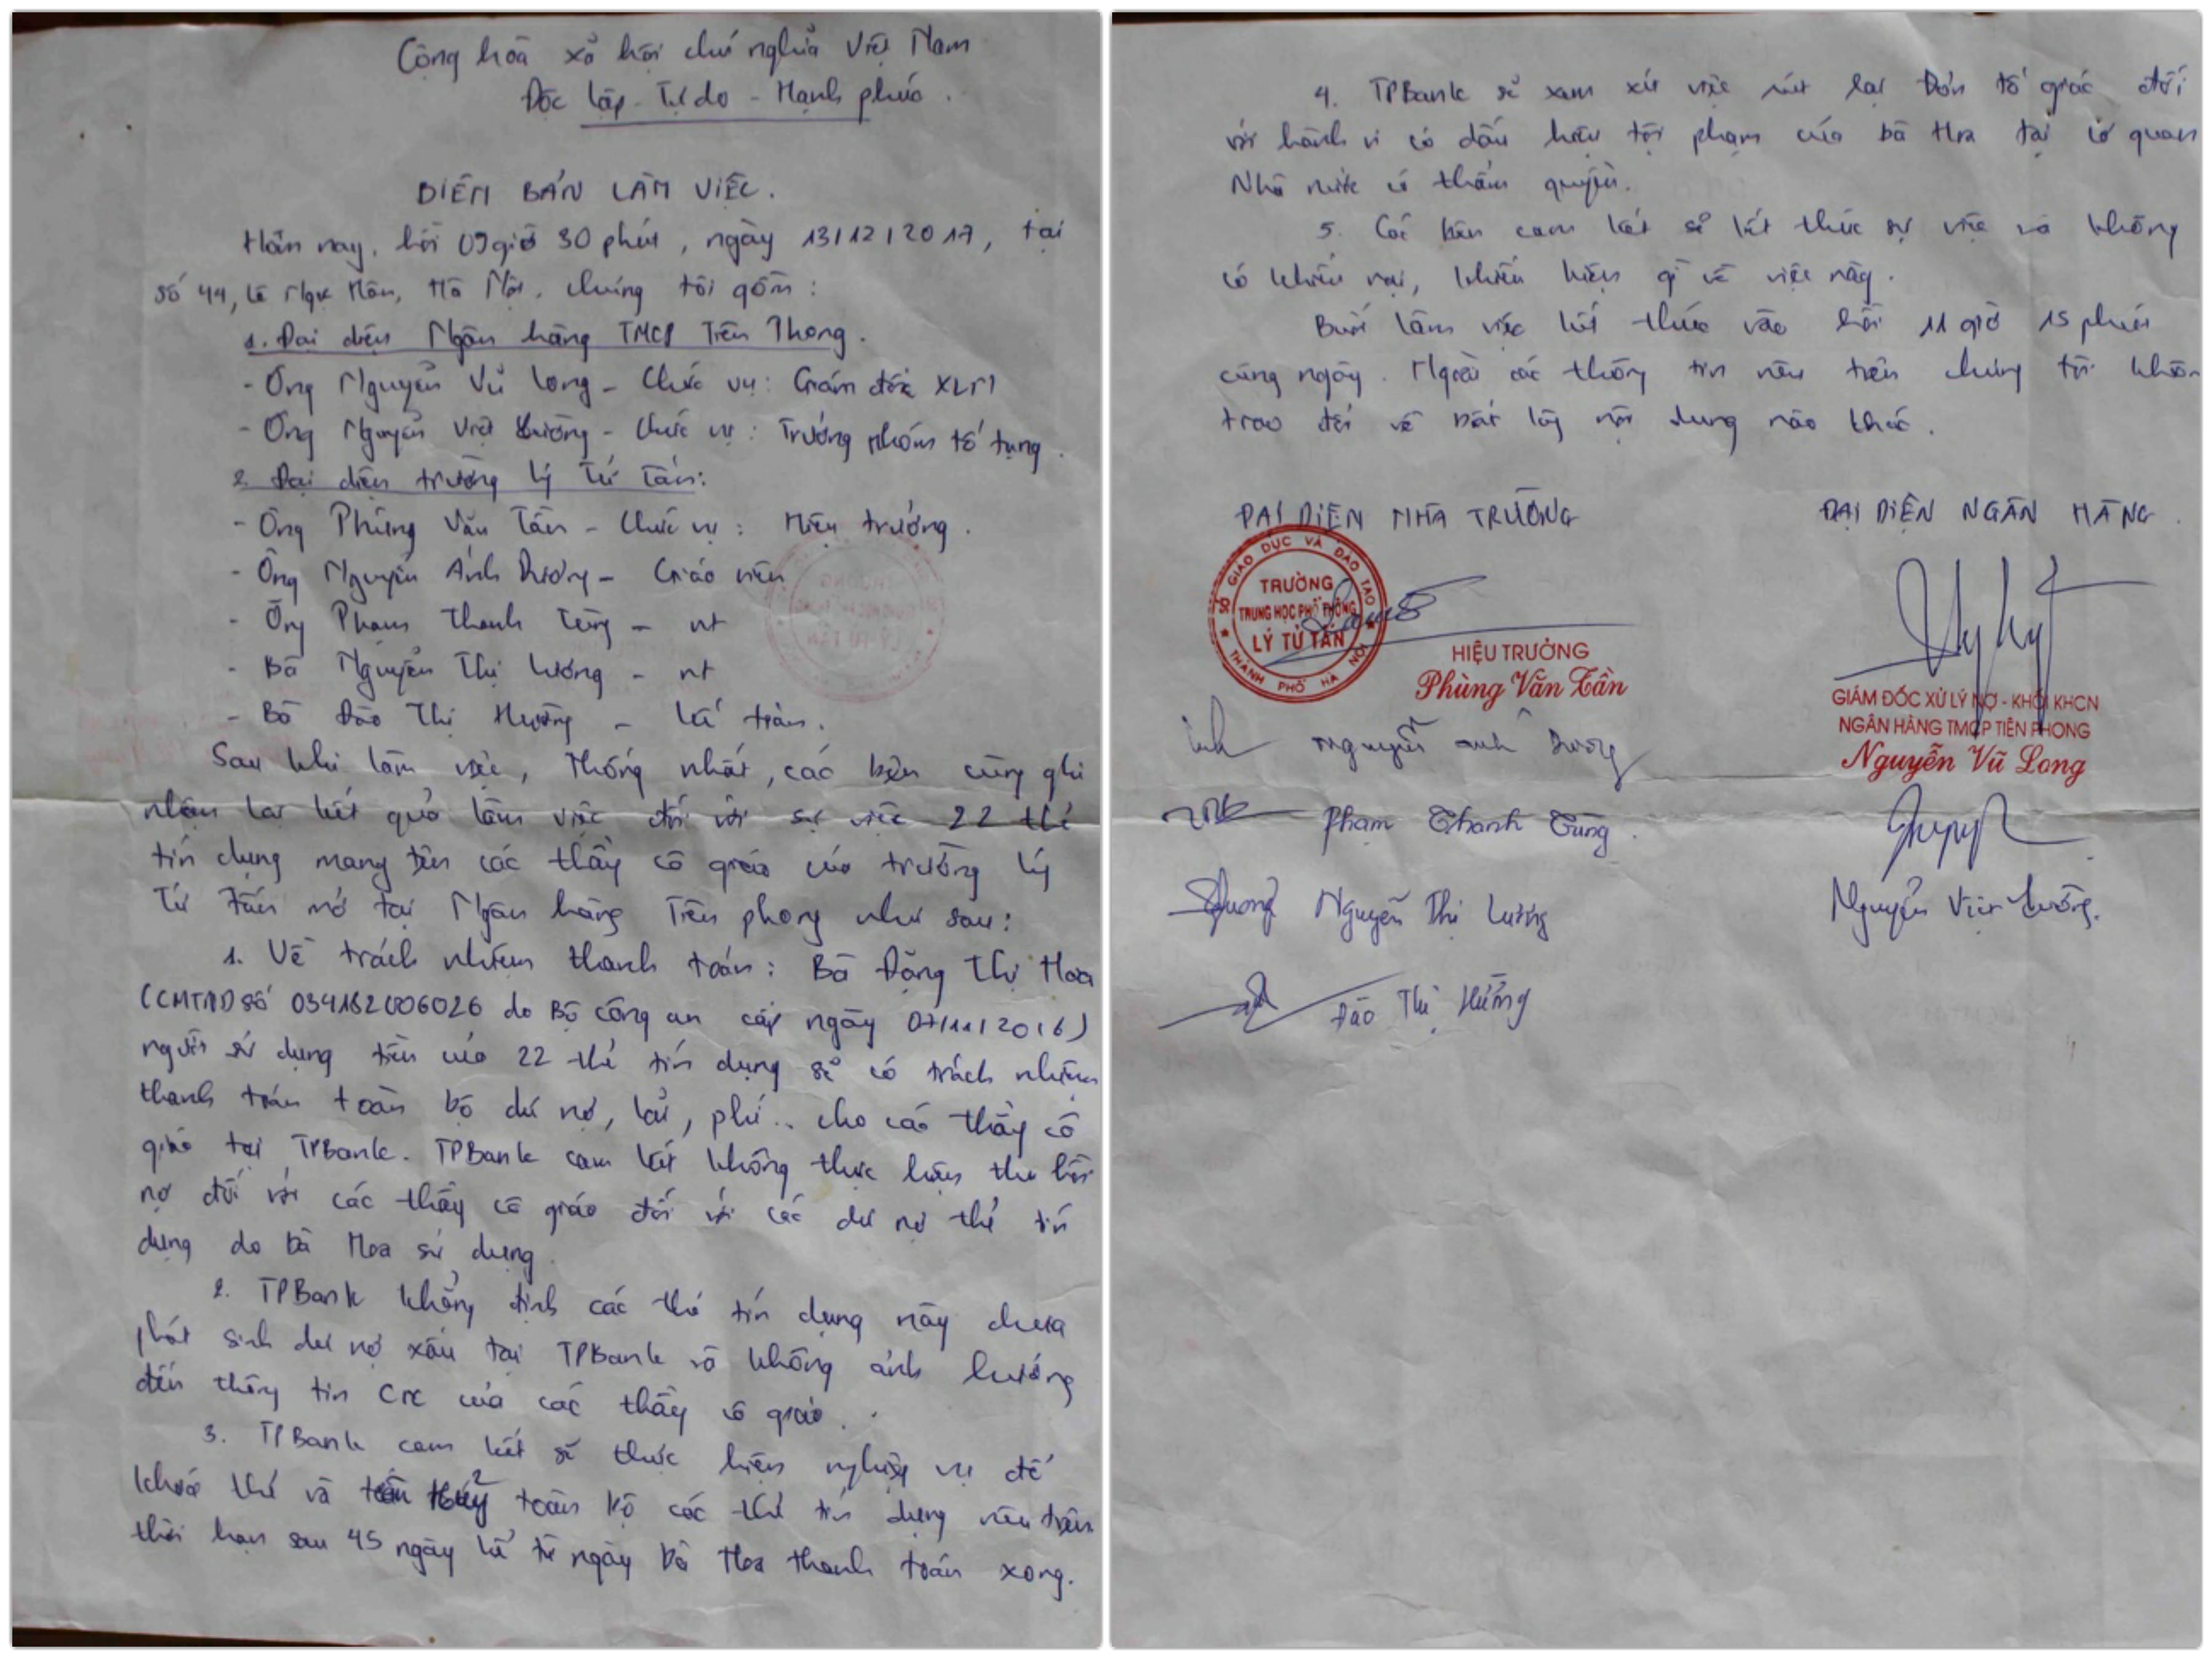 Cộng hoà xã hội chủ nghĩa Việt Nam
Độc lập - Tự do - Hạnh phúc.
BIÊN BẢN LÀM VIỆC.
Hôm nay, hồi 09 giờ 30 phút, ngày 13/12/2017, tại
số 44, Lê Ngọc Hân, Hà Nội, chúng tôi gồm:
1. Đại diện Ngân hàng TMCP Tiên Phong.
- Ông Nguyễn Vũ Long - Chức vụ: Giám đốc XLN
- Ông Nguyễn Việt Cường - Chức vụ: Trưởng nhóm tố tụng.
2. Đại diện trường Lý Tử Tấn:
- Ông Phùng Văn Tần - Chức vụ: Hiệu trưởng.
- Ông Nguyễn Ánh Dương - Giáo viên
- Ông Phạm Thanh Tùng - nt
- Bà Nguyễn Thị Lương - nt
- Bà Đào Thị Hường - Kế toán.
Sau khi làm việc, thống nhất, các bên cùng ghi
nhận lại kết quả làm việc đối với sự việc 22 thẻ
tín dụng mang tên các thầy cô giáo của trường Lý
Tử Tấn mở tại Ngân hàng Tiên phong như sau:
1. Về trách nhiệm thanh toán: Bà Đặng Thị Hoa
(CMTND số 034182006026 do Bộ công an cấp ngày 07/11/2016)
người sử dụng tiền của 22 thẻ tín dụng sẽ có trách nhiệm
thanh toán toàn bộ dư nợ, lãi, phí.. cho các thầy cô
giáo tại TPBank. TPBank cam kết không thực hiện thu hồi
nợ đối với các thầy cô giáo đối với các dư nợ thẻ tín
dụng do bà Hoa sử dụng.
2. TPBank khẳng định các thẻ tín dụng này chưa
phát sinh dư nợ xấu tại TPBank và không ảnh hưởng
đến thông tin CIC của các thầy cô giáo.
3. TPBank cam kết sẽ thực hiện nghiệp vụ để
khoá thẻ và toàn bộ các thẻ tín dụng nêu trên
thời hạn sau 45 ngày kể từ ngày bà Hoa thanh toán xong.
4. TPBank sẽ xem xét việc rút lại Đơn tố giác đối
với hành vi có dấu hiệu tội phạm của bà Hoa tại cơ quan
Nhà nước có thẩm quyền.
5. Các bên cam kết sẽ kết thúc sự việc và không
có khiếu nại, khiếu kiện gì về việc này.
Buổi làm việc kết thúc vào hồi 11 giờ 15 phút
cùng ngày. Ngoài các thông tin nêu trên chúng tôi khôn
trao đổi về bất kỳ nội dung nào khác.
ĐẠI DIỆN NHÀ TRƯỜNG
SỞ GIÁO DỤC VÀ ĐÀO TẠO
TRƯỜNG
TRUNG HỌC PHỔ THÔNG
LÝ TỬ TẤN
THÀNH PHỐ HÀ NỘI
HIỆU TRƯỞNG
Phùng Văn Tần
Nguyễn Ánh Dương
Phạm Thanh Tùng.
Nguyễn Thị Lương
Đào Thị Hường
ĐẠI DIỆN NGÂN HÀNG.
GIÁM ĐỐC XỬ LÝ NỢ - KHỐI KHCN
NGÂN HÀNG TMCP TIÊN PHONG
Nguyễn Vũ Long
Nguyễn Việt Cường.